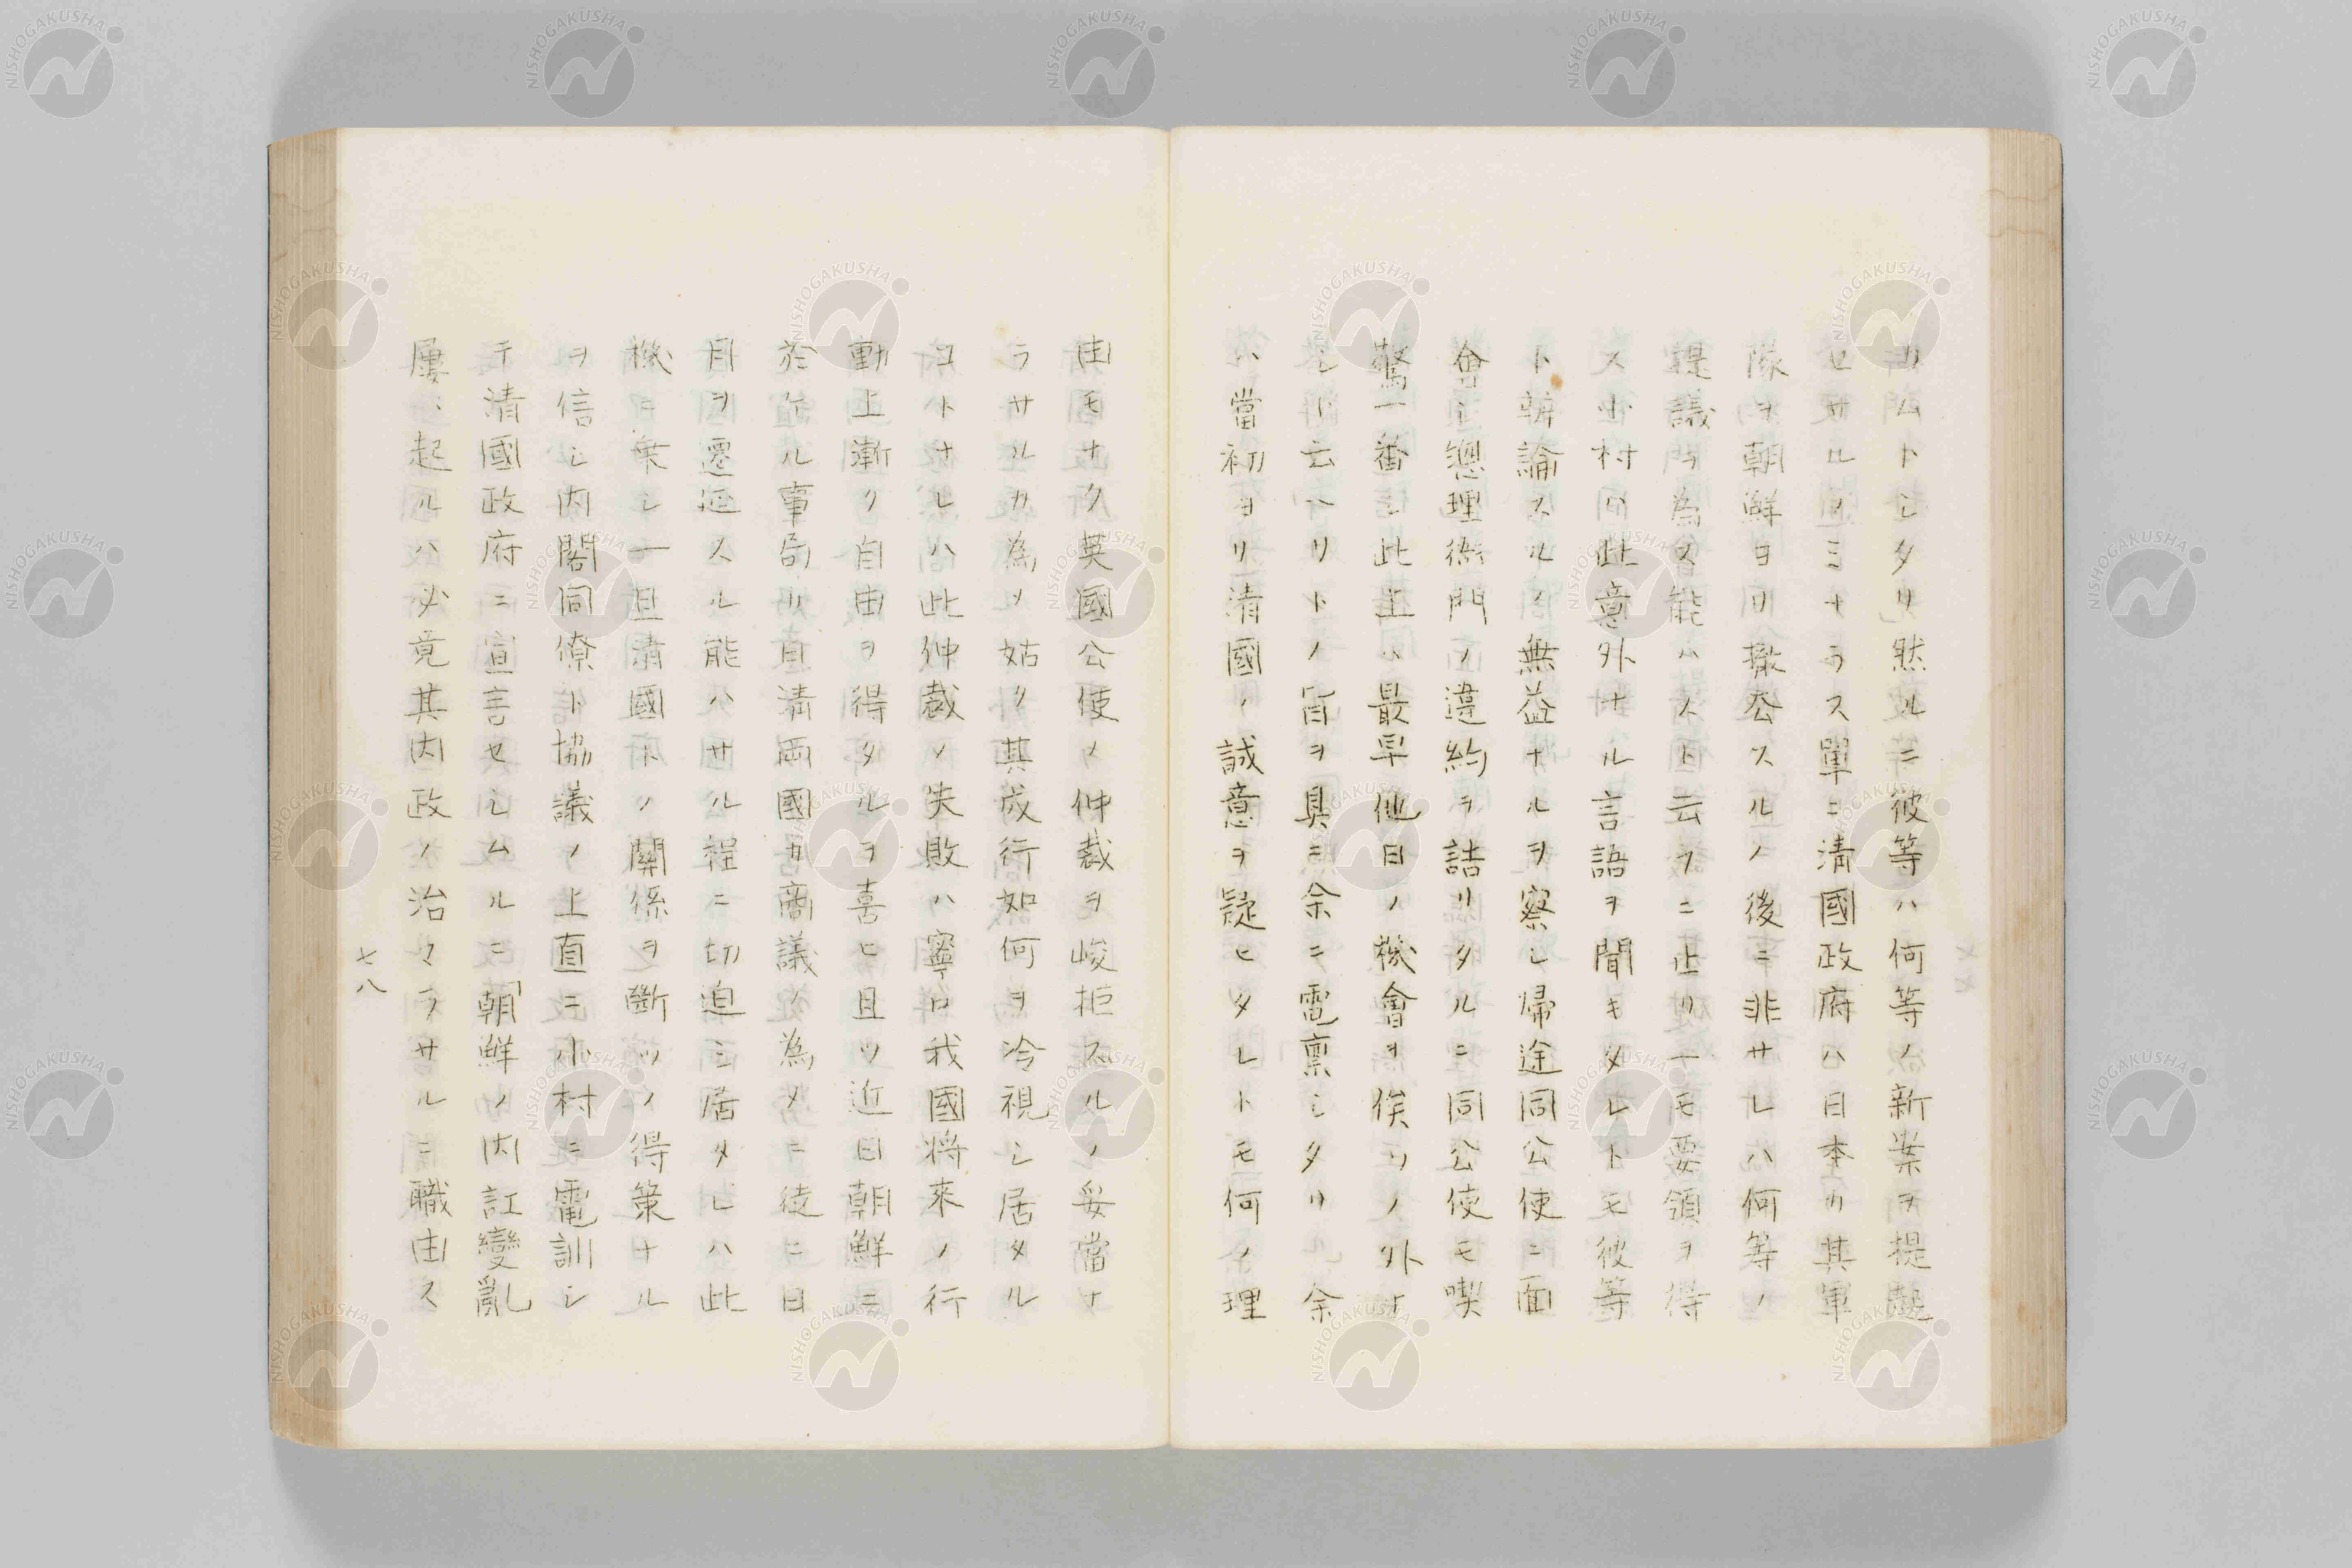 カムトシタリ然ルニ彼等ハ何等ノ新案ヲ提起
セサルノミナラス單ニ清國政府ハ日本カ其軍
隊ヲ朝鮮ヨリ撤去スルノ後ニ非サレハ何等ノ
提議ヲ為ス能ハスト云フニ止リ一モ要領ヲ得
ス小村ハ此意外ナル言語ヲ聞キタレトモ彼等
ト辨論スルノ無益ナルヲ察シ帰途同公使ニ面
會シ總理衙門ノ違約ヲ詰リタルニ同公使モ喫
驚一番シ此上ハ最早他日ノ機會ヲ俟ツノ外ナ
シト云ハリトノ旨ヲ具ニ余ニ電禀シタリ余
ハ當初ヨリ清國ノ誠意ヲ疑ヒタレトモ何ノ理
由モナク英國公使ノ仲裁ヲ峻拒スルノ妥當ナ
ラサルカ為メ姑ク其成行如何ヲ冷視シ居タル
コトナレハ此仲裁ノ失敗ハ寧ロ我國将來ノ行
動上漸ク自由ヲ得タルヲ喜ヒ且ツ近日朝鮮ニ
於ケル事局ハ日清両國カ商議ノ為メニ徒ニ日
月ヲ遷延スル能ハサル程ニ切迫シ居タレハ此
機ニ乗シ一旦清國トノ關係ヲ斷ツノ得策ナル
ヲ信シ内閣同僚ト協議ノ上直ニ小村ニ電訓シ
テ清國政府ニ宣言セシムルニ「朝鮮ノ内訌變亂
屢〻起ルハ必竟其内政ノ治マラサルニ職由ス
七八